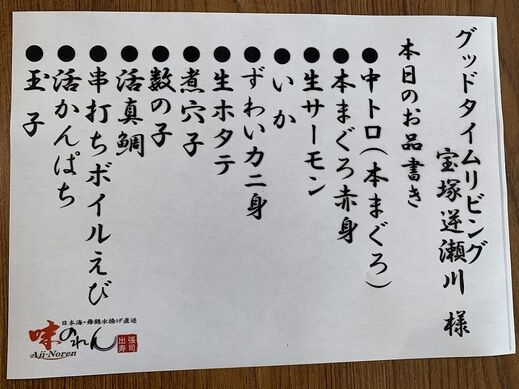 グッドタイムリビング
宝塚逆瀬川 様
本日のお品書き
●中トロ(本まぐろ)
●本まぐろ赤身
●生サーモン
●いか
●ずわいカニ身
●生ホタテ
●煮穴子
●数の子
●活真鯛
●串打ちボイルえび
●活かんぱち
●玉子
日本海・舞鶴水揚げ直送
味のれん
Aji-Noren
出張
寿司